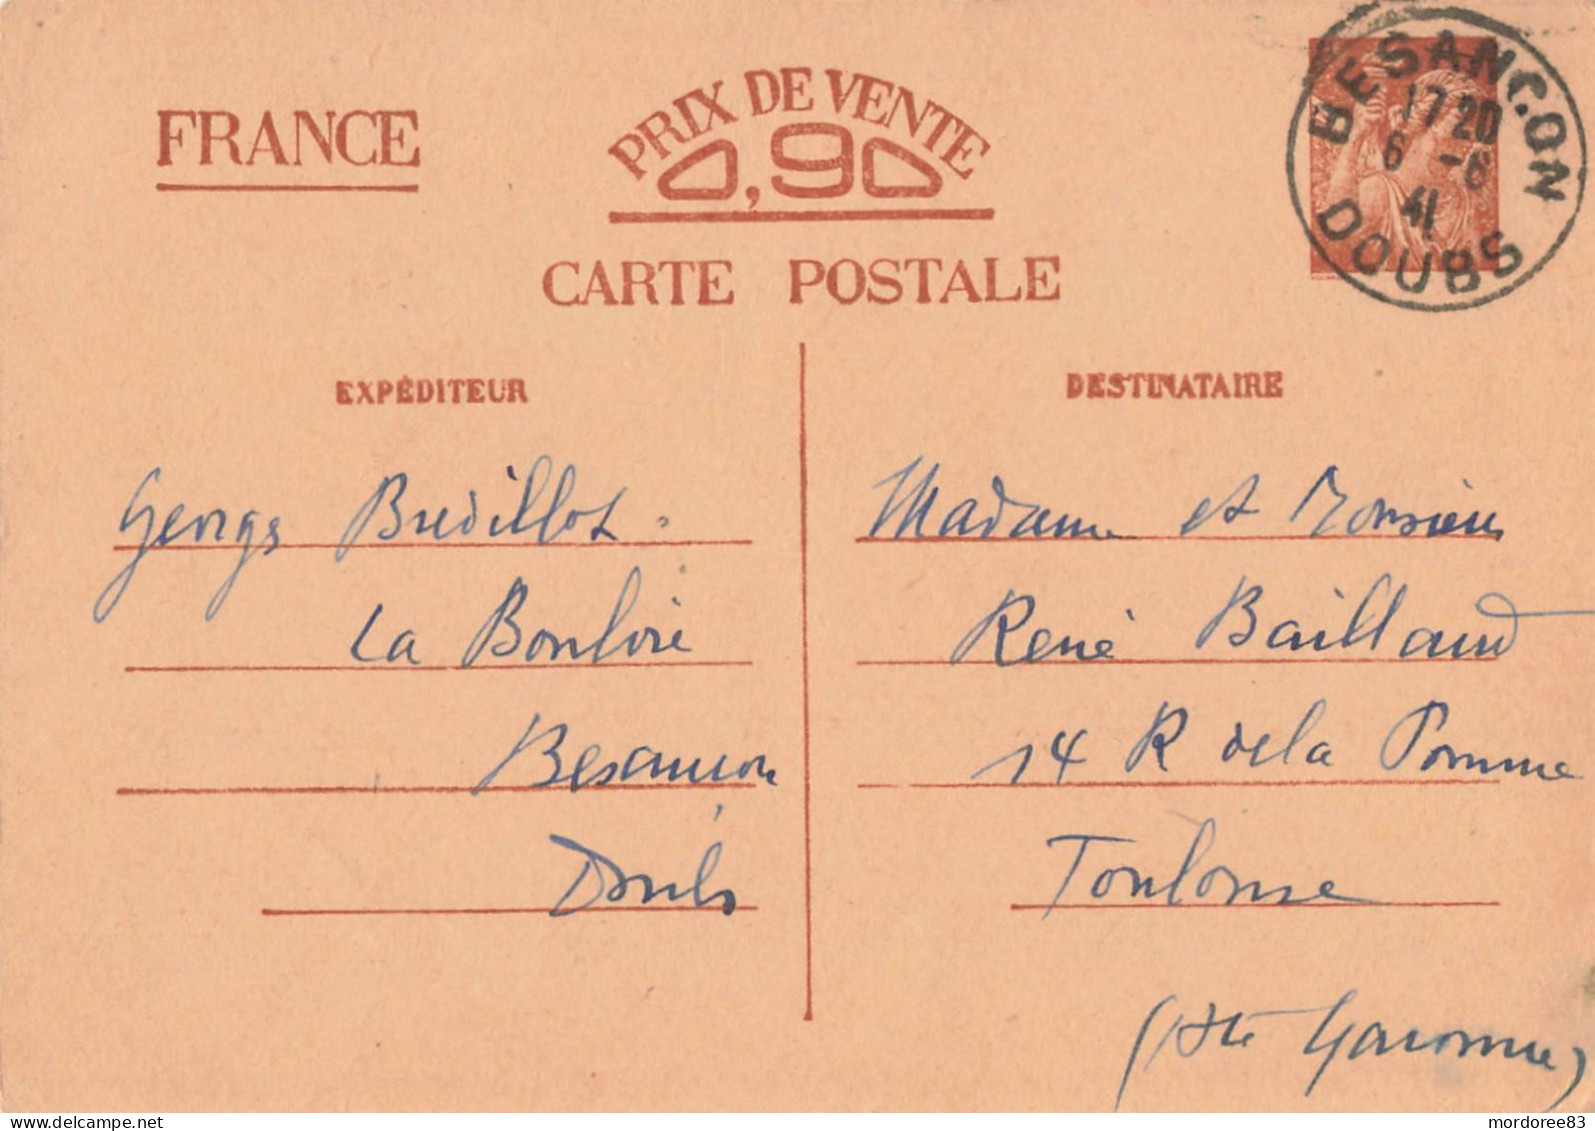 FRANCE
PRIX DE VENTE
0,90
CARTE POSTALE
BESANÇON
17 20
6 -6
41
DOUBS
EXPÉDITEUR
Georges Bredillot
La Bouloie
Besançon
Doubs
DESTINATAIRE
Madame et Monsieur
René Baillaud
14 R de la Pomme
Toulouse
(Hte Garonne)
www.delcampe.net
mordoree83